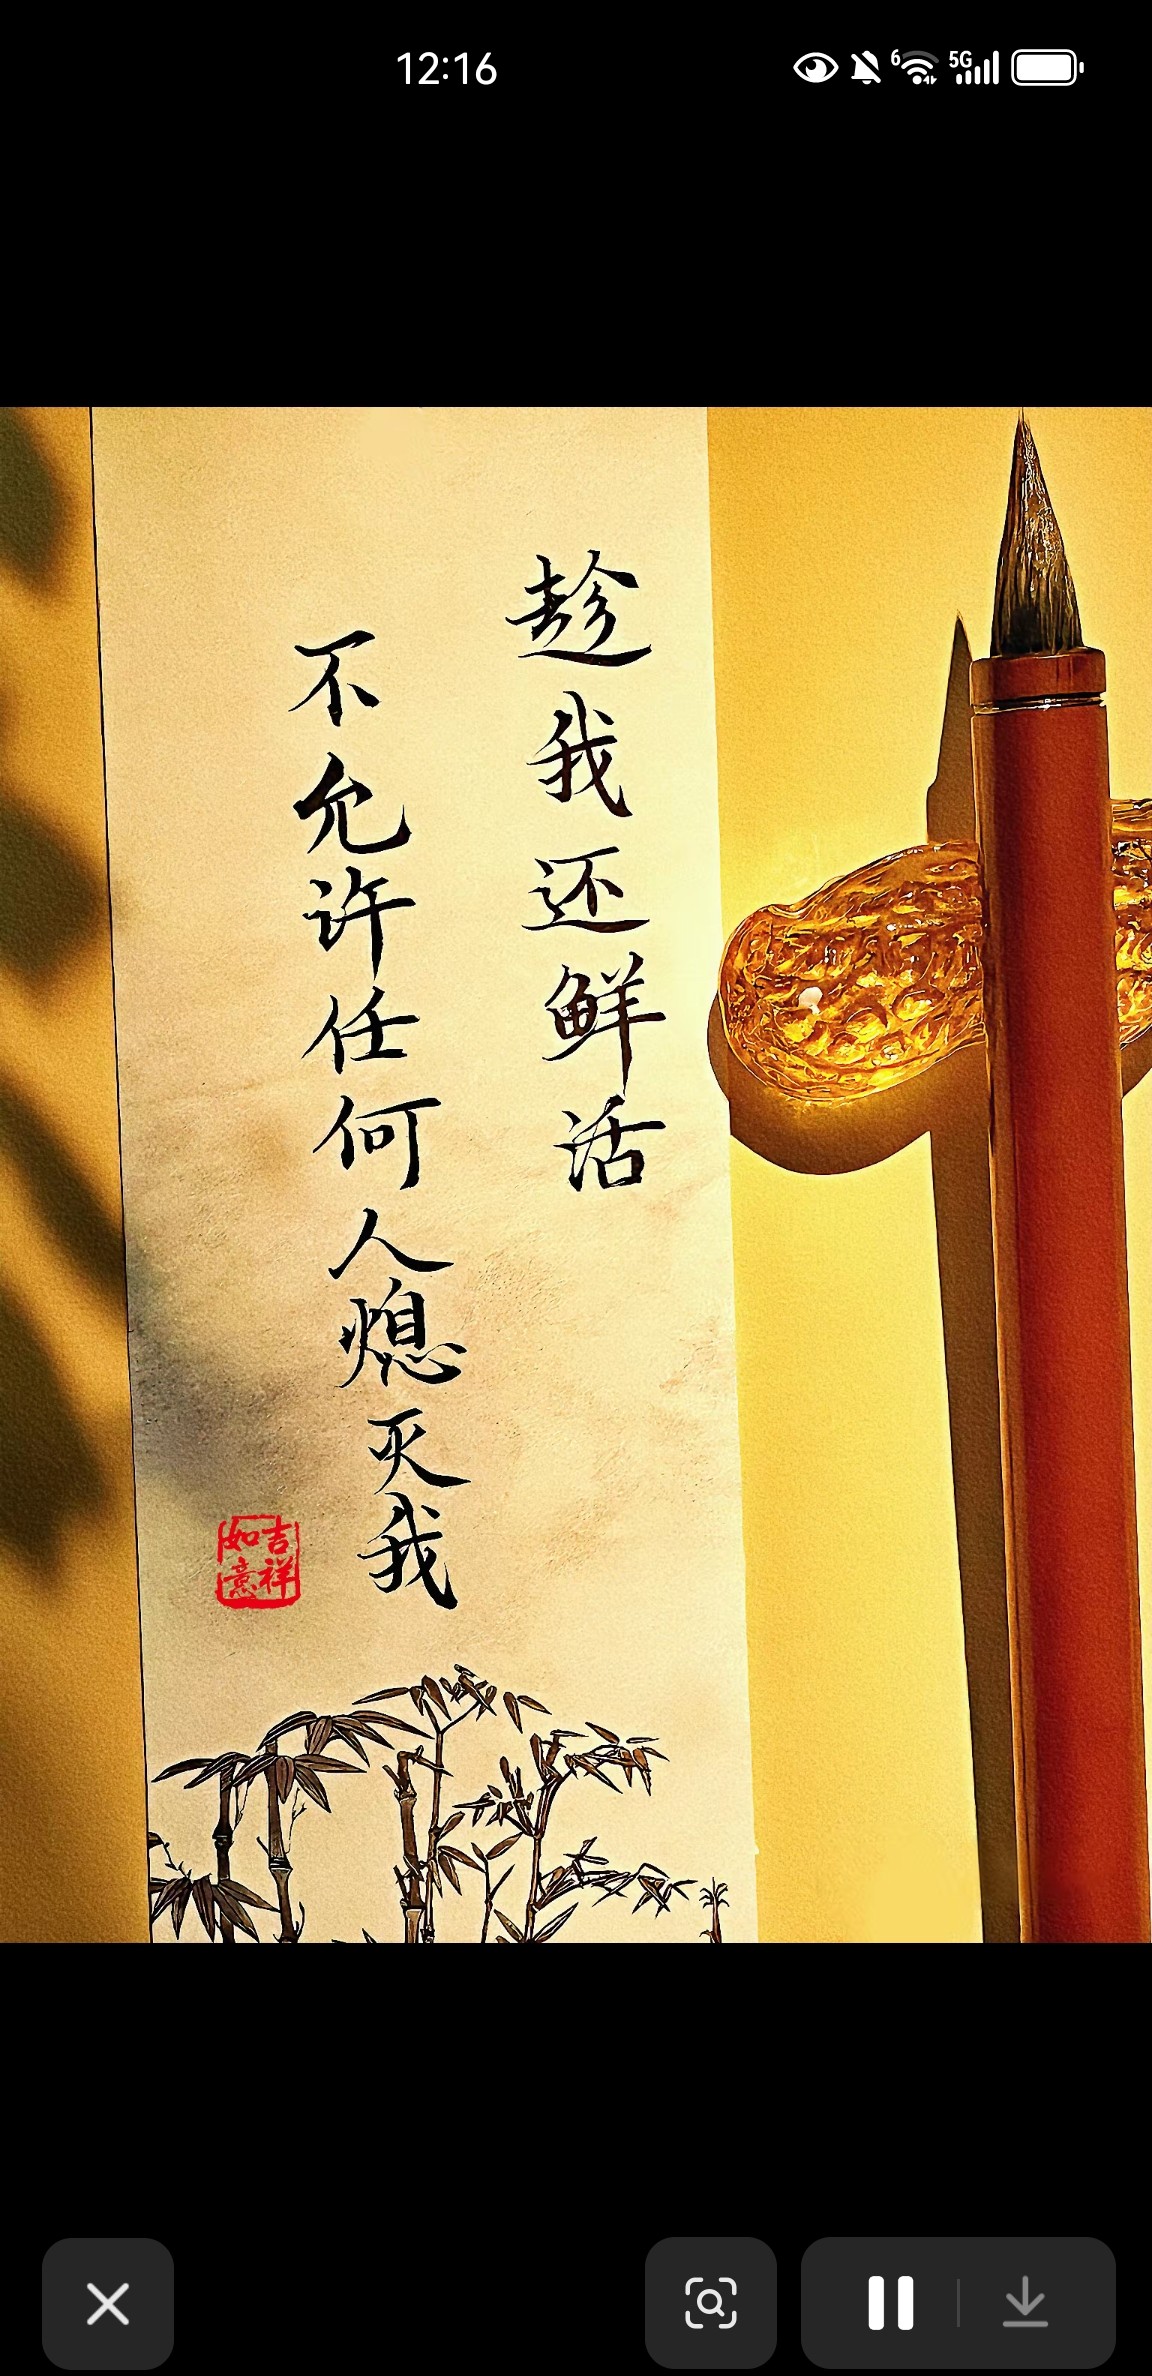 12:16
6
5G
趁我还鲜活
不允许任何人熄灭我
吉祥
如意